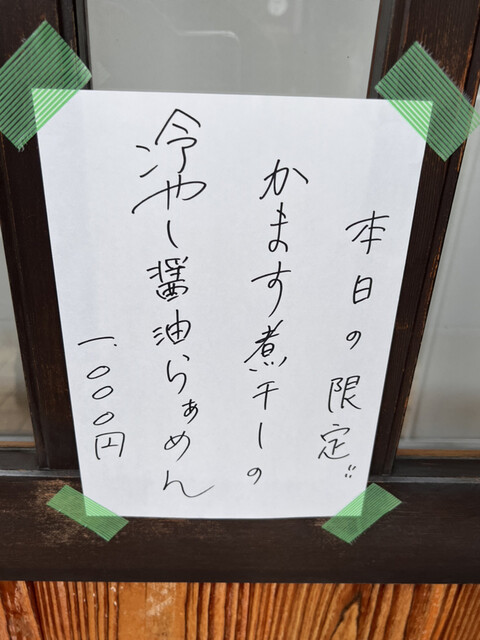 本日の限定!!
かます煮干しの
冷やし醤油らぁめん
一、〇〇〇円